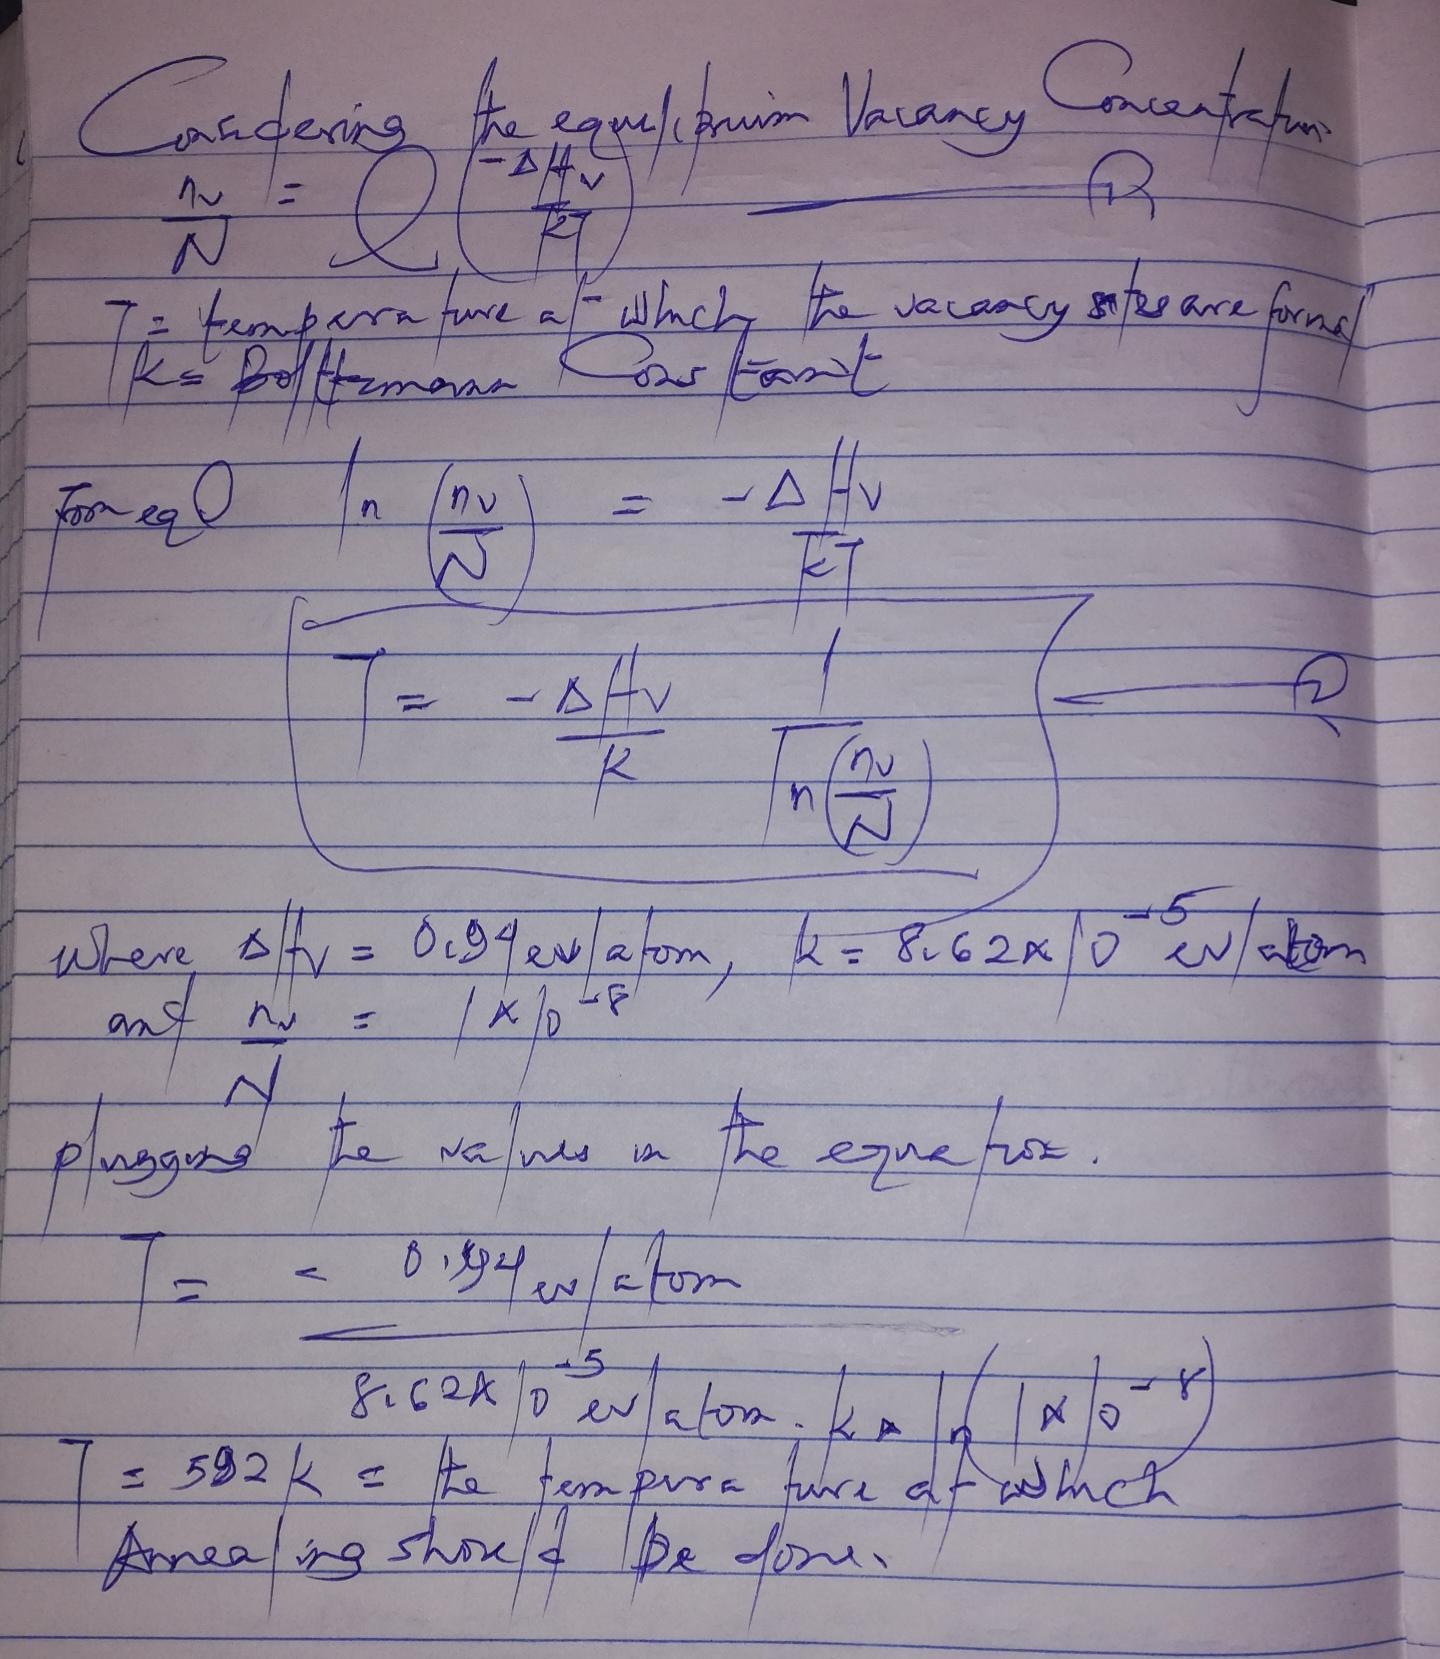 Considering the equilibrium Vacancy Concentration
nv/N = e^(-ΔHv/kT) ——— ①
T = temperature at which the vacancy sites are formed
k = Boltzmann Constant
From eq ① ln (nv/N) = -ΔHv/kT
T = -ΔHv/k 1/ln(nv/N) ——— ②
where ΔHv = 0.94 ev/atom, k = 8.62x10^-5 ev/atom
and nv/N = 1x10^-8
plugging the values in the equation.
T = - 0.94 ev/atom
8.62x10^-5 ev/atom.k x ln(1x10^-8)
T = 592k = the temperature at which
Annealing should be done.